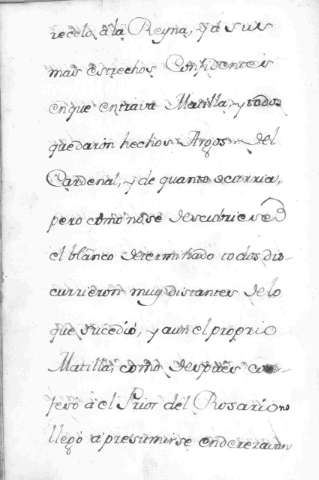 recelo a la Reyna, y a sus
mas estrechos Confidentes
en que entrava Matilla, y todos
quedaron hechos Argos del
Cardenal, y de quanto ocorria,
pero como no se descubriese
el blanco determinado todos dis
currieron muy distantes de lo
que sucedió, y aun el proprio
Matilla, como despues con
fesó a el Prior del Rosario no
llegó a presumirse endereza